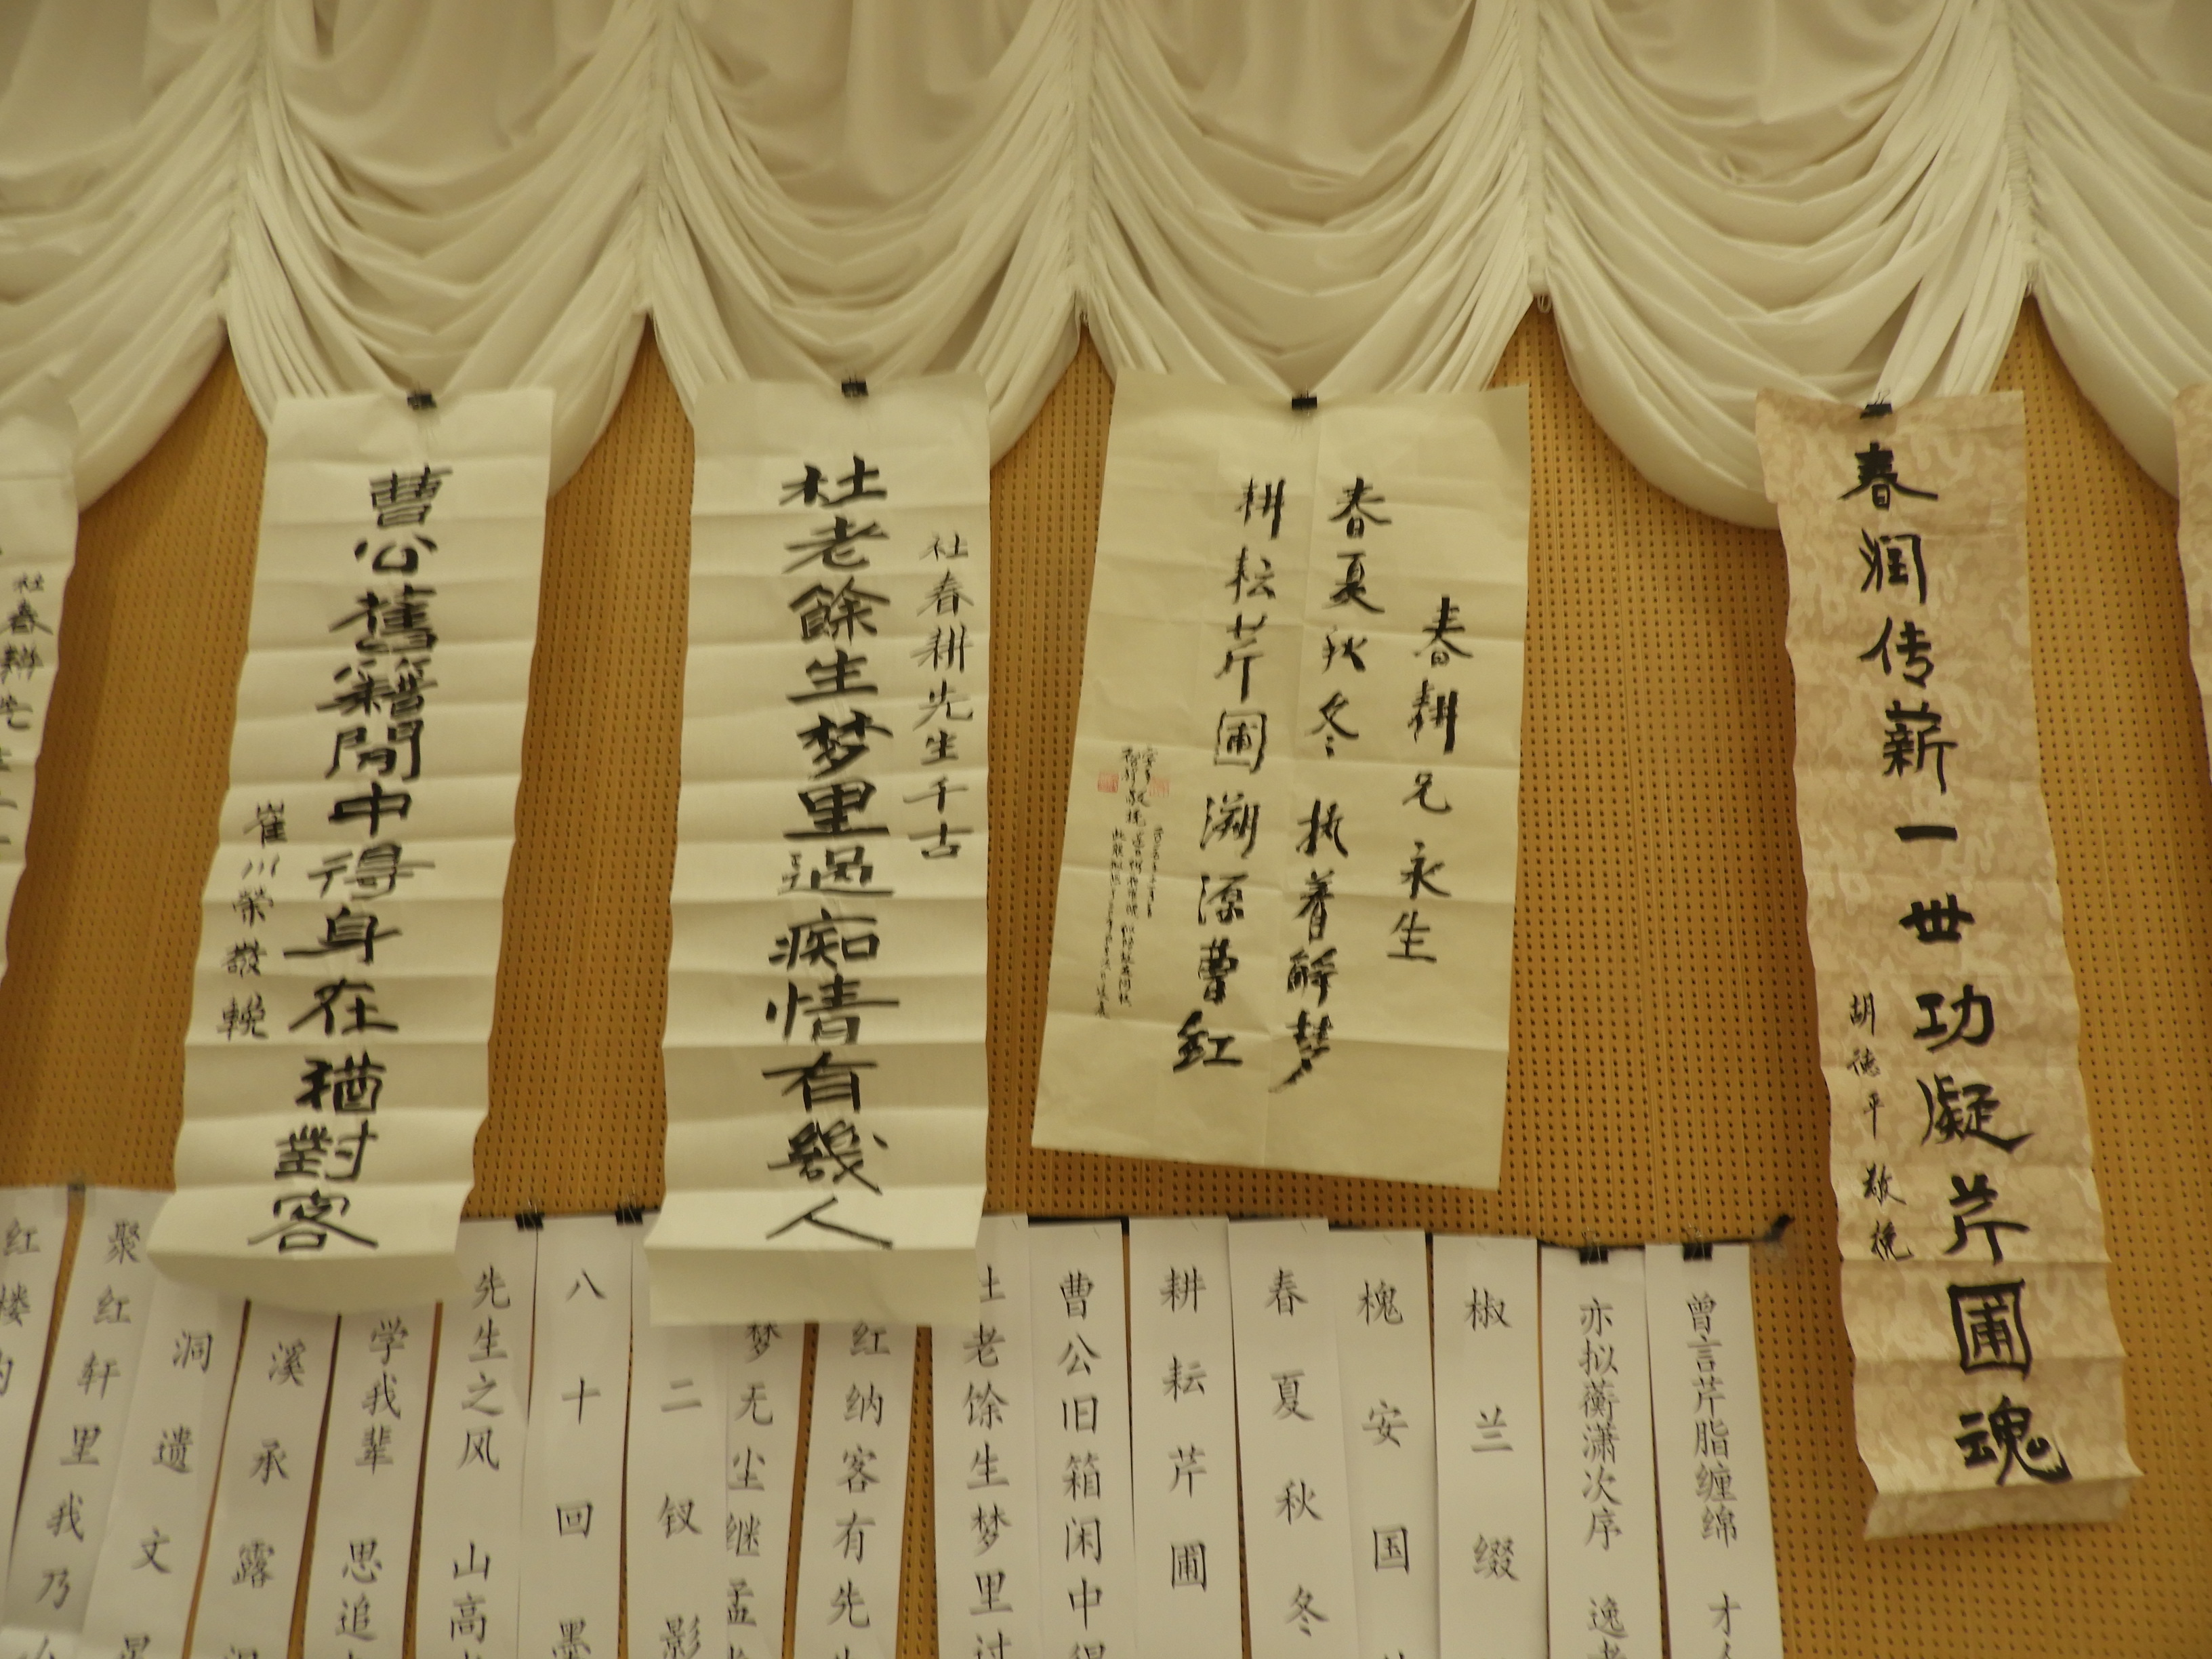 春润传薪一世功凝芹圃魂
胡德平敬挽
春耕兄永生
春夏秋冬执着解梦
耕耘芹圃溯源曹红
杜春耕先生千古
杜老餘生梦里過痴情有幾人
曹公舊籍閒中得身在猶對客
崔川榮敬輓
曾言芹脂缠绵 才
亦拟蘅潇次序 逸
椒兰缀
槐安国
春夏秋冬
耕耘芹圃
曹公旧箱闲中得
老馀生梦里过
红纳客有先
梦无尘继孟
二钗影
八十回墨
先生之风 山高
学我辈 思追
溪承露
洞遗文
聚红轩里我乃
红楼